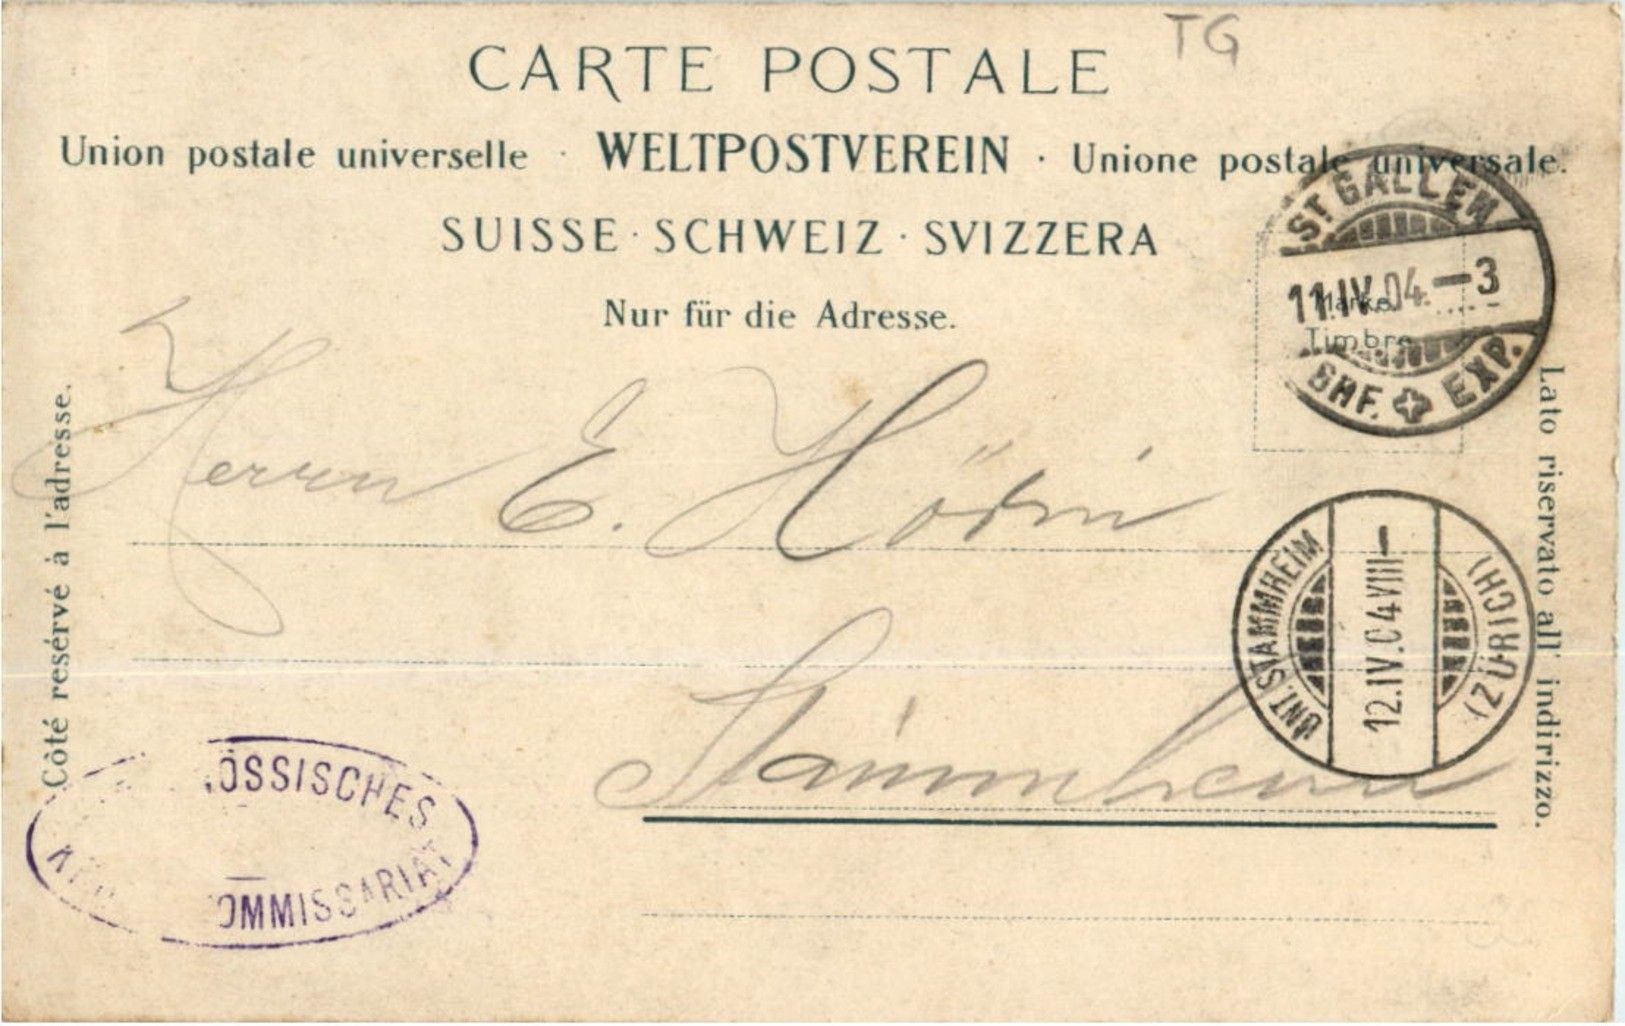 TG
CARTE POSTALE
Union postale universelle · WELTPOSTVEREIN · Unione postale universale.
SUISSE · SCHWEIZ · SVIZZERA
Nur für die Adresse.
Marke
Timbre
ST. GALLEN
11.IV.04.–3
BHF. EXP.
Côté resérvé à l'adresse.
Lato riservato all' indirizzo.
Herrn E.
Stammheim
UNT. STAMMHEIM
12.IV.04.VIII–
(ZÜRICH)
ÖSSISCHES
OMMISSARIAT